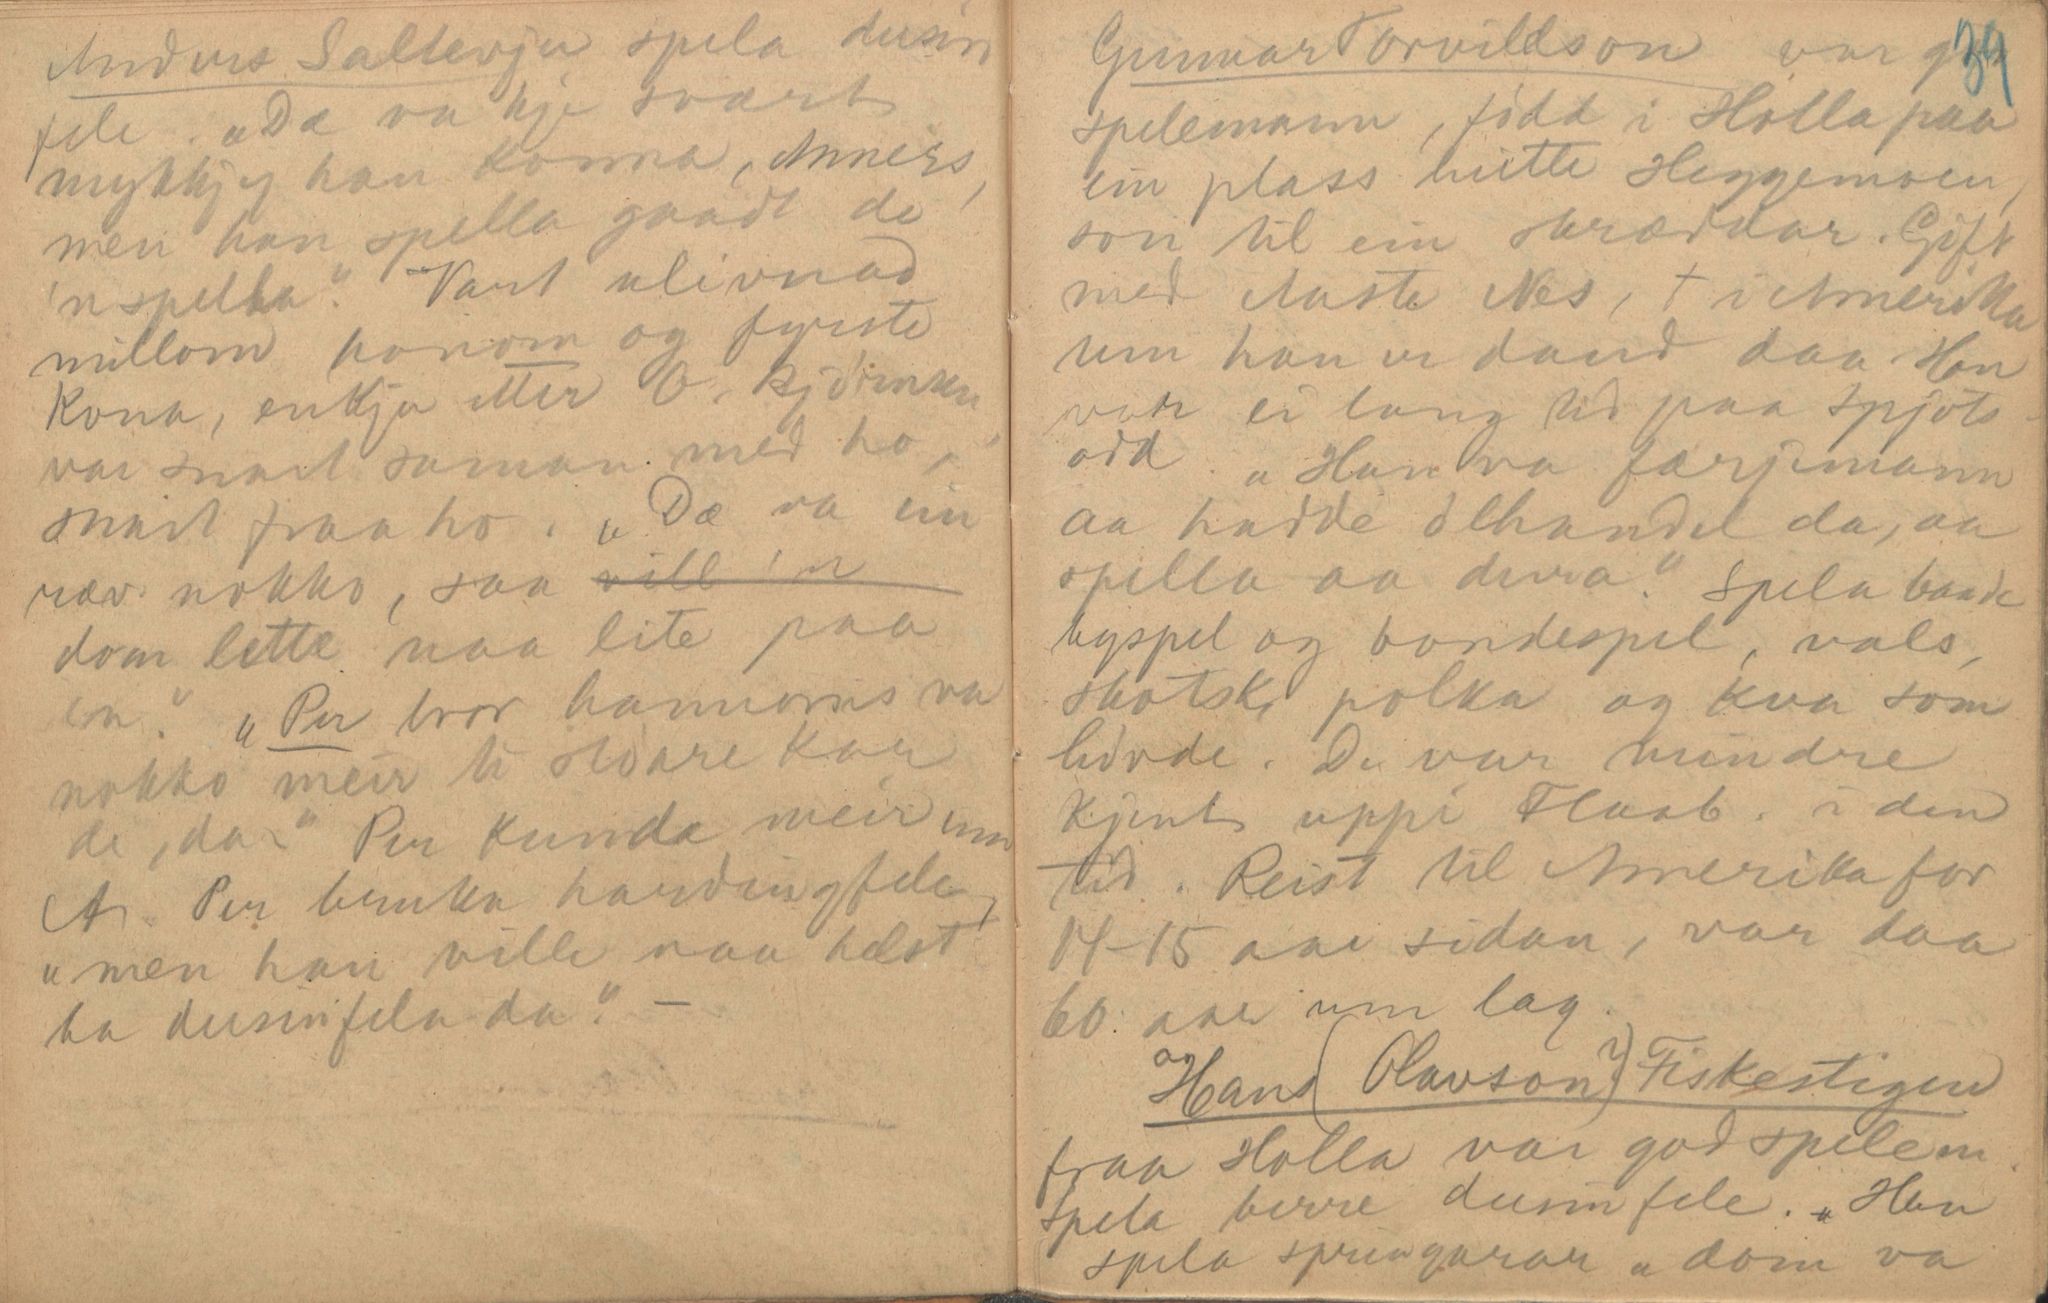 Anders Saltevju spela dusin
fele. „Dæ va kje svært
mykkjy han konna, Anners,
men han spella gaadt de
'n spella." Vart ulivnad
millom honom og fyrste
kona, enkja etter O.
var snart saman med ho,
snart fraa ho. „Dæ va ein
ræv nokko, saa vill 'n
dom lette naa lite paa
en." „Per bror hannoms va
nokko meir ti sloare kar
de, da." Per kunde meir enn
A. Per bruka hardingfele,
„men han ville naa helst
ha dusinfela da". —
Gunnar Torvildson var g 39
spelemann, född i Holla paa
ein plass heitte Heggemoen,
son til ein skræddar. Gift
med Aaste Nes, † i Amerika
um han er daud daa. Han
var ei lang tid paa Spjots-
odd. „Han va færjemann
aa hadde ölhandel da, aa
spella aa dera." Spela baade
byspel og bondespel, vals,
skotsk, polka og kva som
hövde. De var mindre
kjent uppi Flaab. i den
tid. Reist til Amerika for
14-15 aar sidan, var daa
60 aar um lag.
og
Hans (Olavson?) Fiskestigen
fraa Holla var god spelem.
Spela berre dusinfele. „Han
spela springarar „dom va